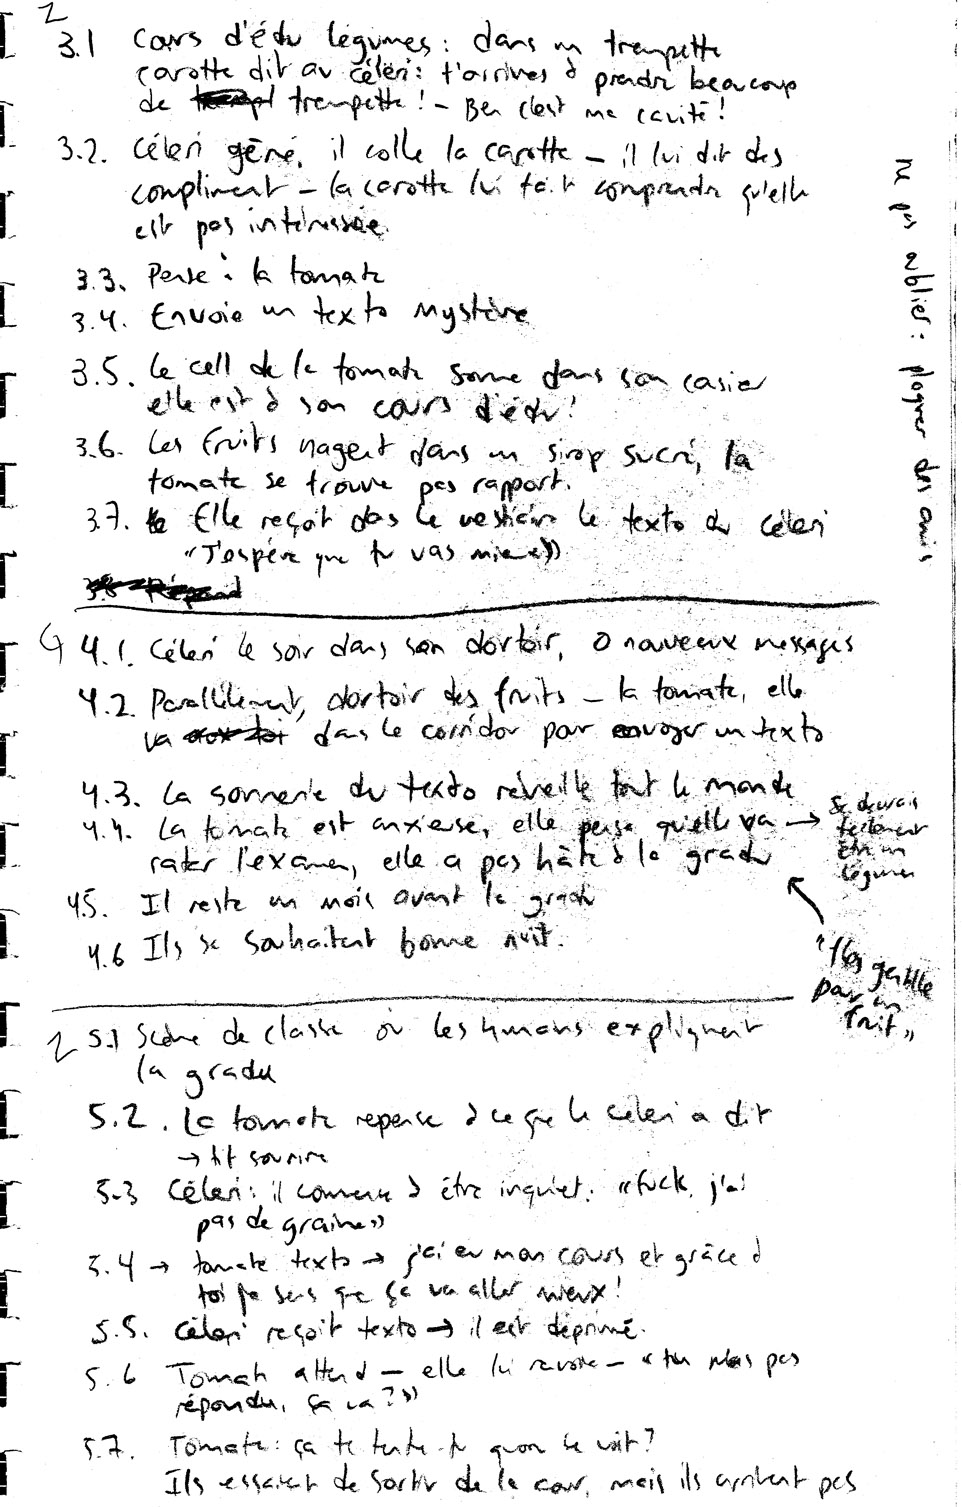 2
3.1 Cours d'édu légumes : dans un trempette
carotte dit au céleri : t'arrives à prendre beaucoup
de trempette ! - Ben c'est ma cavité !
3.2. Céleri gêné, il colle la carotte - il lui dit des
compliment - la carotte lui fait comprendre qu'elle
est pas intéressée.
3.3. Pense à la tomate
3.4. Envoie un texto mystère
3.5. Le cell de la tomate sonne dans son casier
elle est à son cours d'édu !
3.6. Les fruits nagent dans un sirop sucré, la
tomate se trouve pas rapport.
3.7. Elle reçoit dans le vestiaire le texto du céleri
"J'espère que tu vas mieux"
3.8 Répond
ne pas oublier : ploguer des amis
4.1. Céleri le soir dans son dortoir, 0 nouveaux messages
4.2. Parallèlement, dortoir des fruits - la tomate, elle
va dans le corridor pour envoyer un texto
4.3. La sonnerie du texto réveille tout le monde
4.4. La tomate est anxieuse, elle pense qu'elle va →
rater l'examen, elle a pas hâte à la gradu
Se devrais
tellement
être un
légume
4.5. Il reste un mois avant la gradu
4.6 Ils se souhaitent bonne nuit.
"T'es gentille
pour un
fruit"
5.1 Scène de classe où les humains expliquent
la gradu
5.2. La tomate repense à ce que le céleri a dit
→ fit sourire
5.3 Céleri : il commence à être inquiet. "fuck, j'ai
pas de graine"
5.4 → tomate texto → j'ai eu mon cours et grâce à
toi je sens que ça va aller mieux !
5.5. Céleri reçoit texto → il est déprimé.
5.6 Tomate attend - elle lui renvoie - "tu m'as pas
répondu, ça va ?"
5.7. Tomate : ça te tente-tu qu'on se voit ?
Ils essaient de sortir de la cour, mais ils arrivent pas